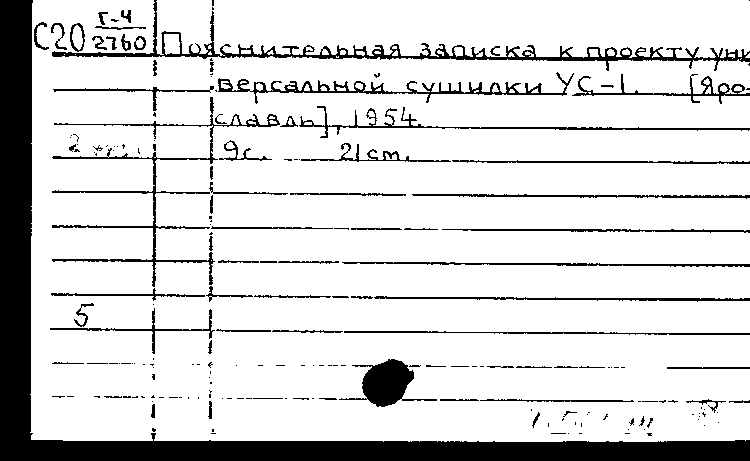 С20 Г-4/2760 Пояснительная записка к проекту уни
версальной сушилки УС-1. [Яро-
славль], 1954.
2
9с. 21cm.
5